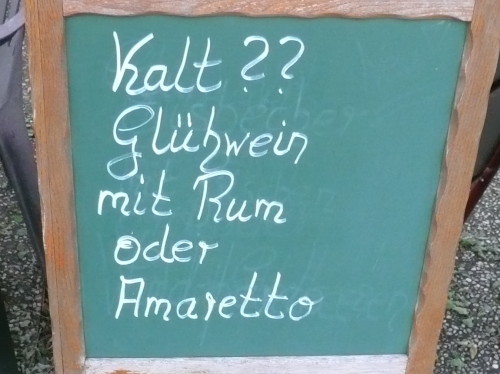 Kalt ??
Glühwein
mit Rum
oder
Amaretto